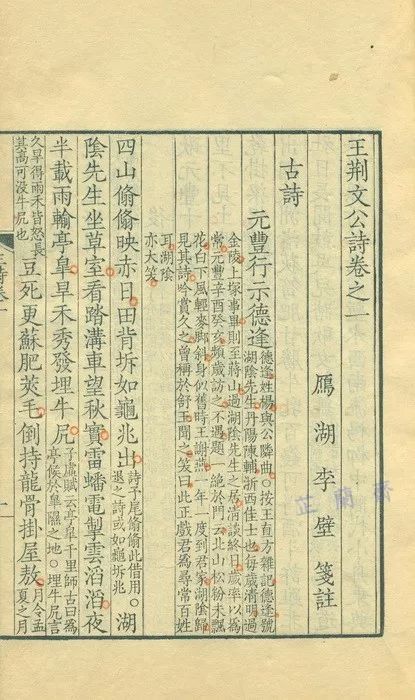 王荊文公詩卷之一
鴈湖李壁箋註
古詩
元豐行示德逢
德逢姓楊與公隣曲。按王直方雜記德逢號
湖陰先生丹陽陳輔浙西佳士也每歲清明過
金陵上塚事畢則至蔣山過湖陰先生之居清談終日歲率以爲
常元豐辛酉癸亥頻歲訪之不遇題一絕於門云北山松粉未飄
花白下風輕麥脚斜身似舊時王謝燕一年一度到君家湖陰歸
見其詩吟賞久之曾稱於舒王聞之笑曰此正戲君爲尋常百姓
耳湖陰
亦大笑
四山翛翛映赤日田背坼如龜兆出
詩予尾翛翛此借用。
退之詩或如龜坼兆
湖
陰先生坐草室看踏溝車望秋實雷蟠電掣雲滔滔夜
半載雨輸亭臯旱禾秀發埋牛尻
子虛賦云亭臯千里師古曰爲
亭候於臯隰之地。埋牛尻言
久旱得雨禾皆怒長
其高可沒牛尻也
豆死更蘇肥莢毛倒持龍骨掛屋敖
月令孟
夏之月
芷蘭齋